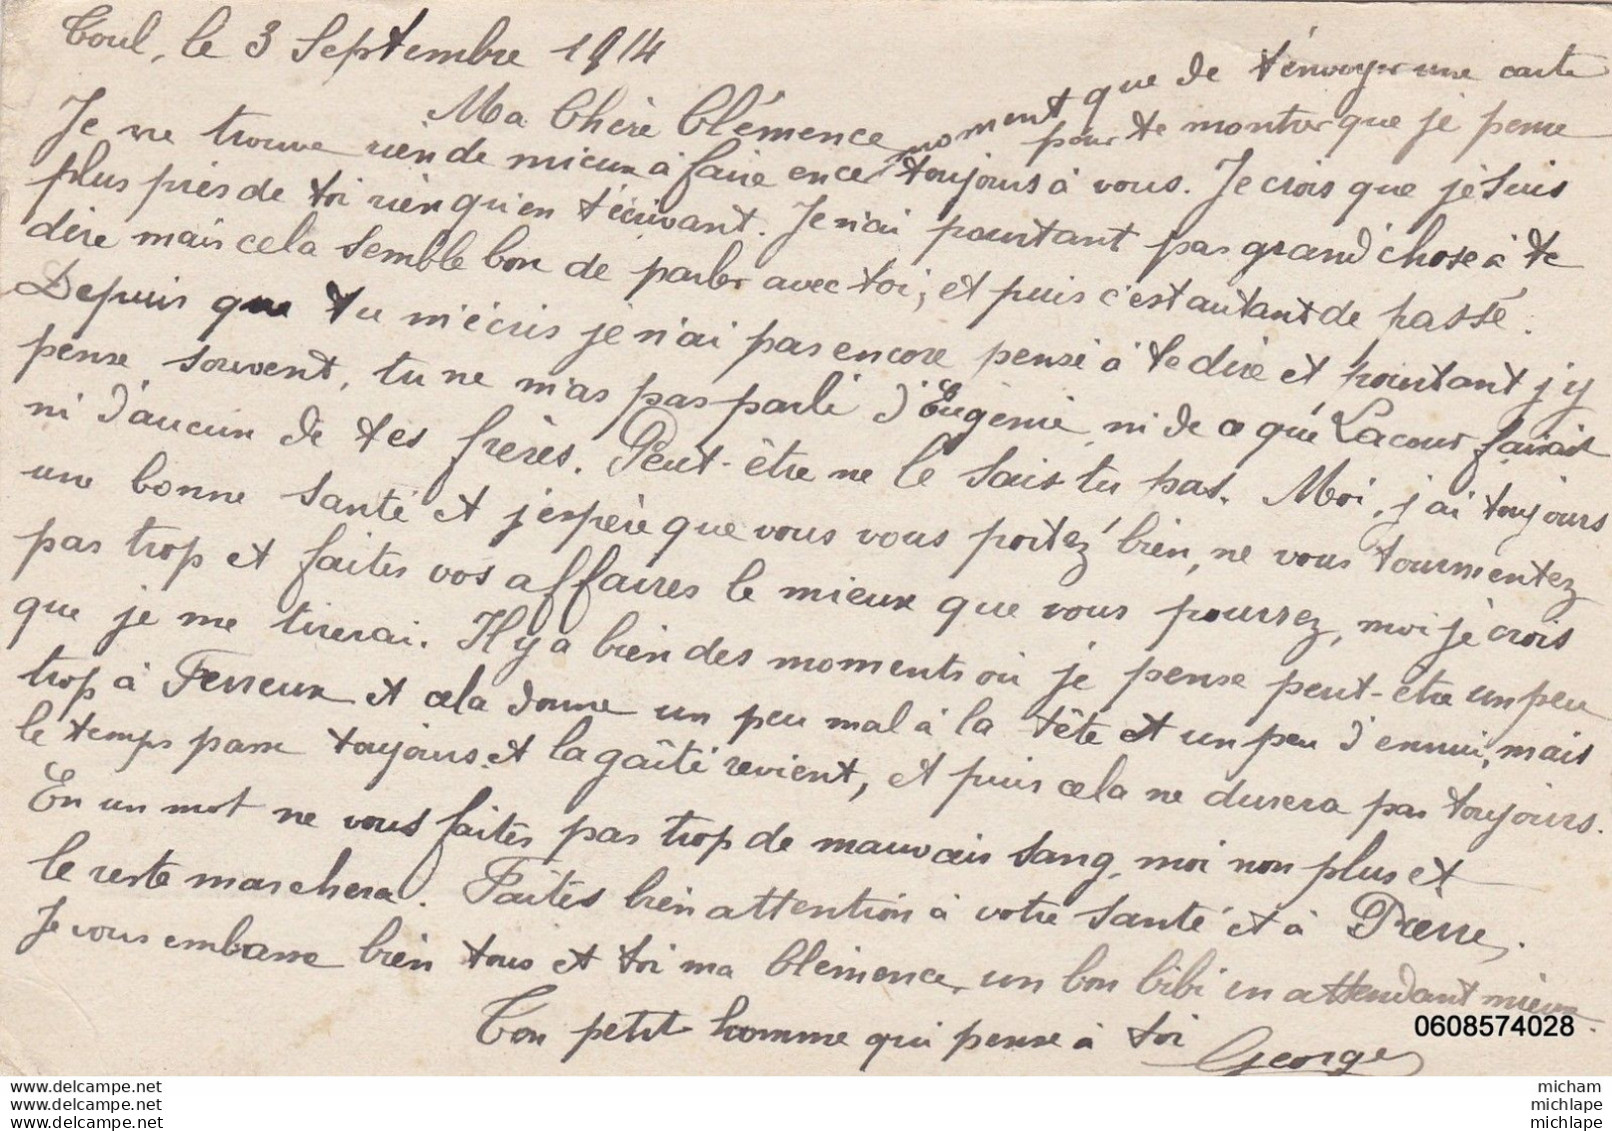 Toul, le 3 Septembre 1914
Ma Chère Clémence
Je ne trouve rien de mieux à faire en ce moment que de t'envoyer une carte
pour te montrer que je pense
toujours à vous. Je crois que je suis
plus près de toi rien qu'en t'écrivant. Je n'ai pourtant pas grand'chose à te
dire mais cela semble bon de parler avec toi, et puis c'est autant de passé.
Depuis que tu m'écris je n'ai pas encore pensé à te dire et pourtant j'y
pense souvent, tu ne m'as pas parlé d'Eugénie, ni de ce que Lacour faisait
ni d'aucun de tes frères. Peut-être ne le sais tu pas. Moi, j'ai toujours
une bonne santé et j'espère que vous vous portez bien, ne vous tourmentez
pas trop et faites vos affaires le mieux que vous pourrez, moi je crois
que je me tirerai. Il y a bien des moments où je pense peut-être un peu
trop à Ferreux et cela donne un peu mal à la tête et un peu d'ennui, mais
le temps passe toujours et la gaîté revient, et puis cela ne durera pas toujours.
En un mot ne vous faites pas trop de mauvais sang, moi non plus et
le reste marchera. Faites bien attention à votre santé et à Pierre.
Je vous embrasse bien tous et toi ma Clémence, un bon bibi en attendant mieux.
Ton petit homme qui pense à toi
Georges
0608574028
www.delcampe.net micham
www.delcampe.net michlape
www.delcampe.net michlape